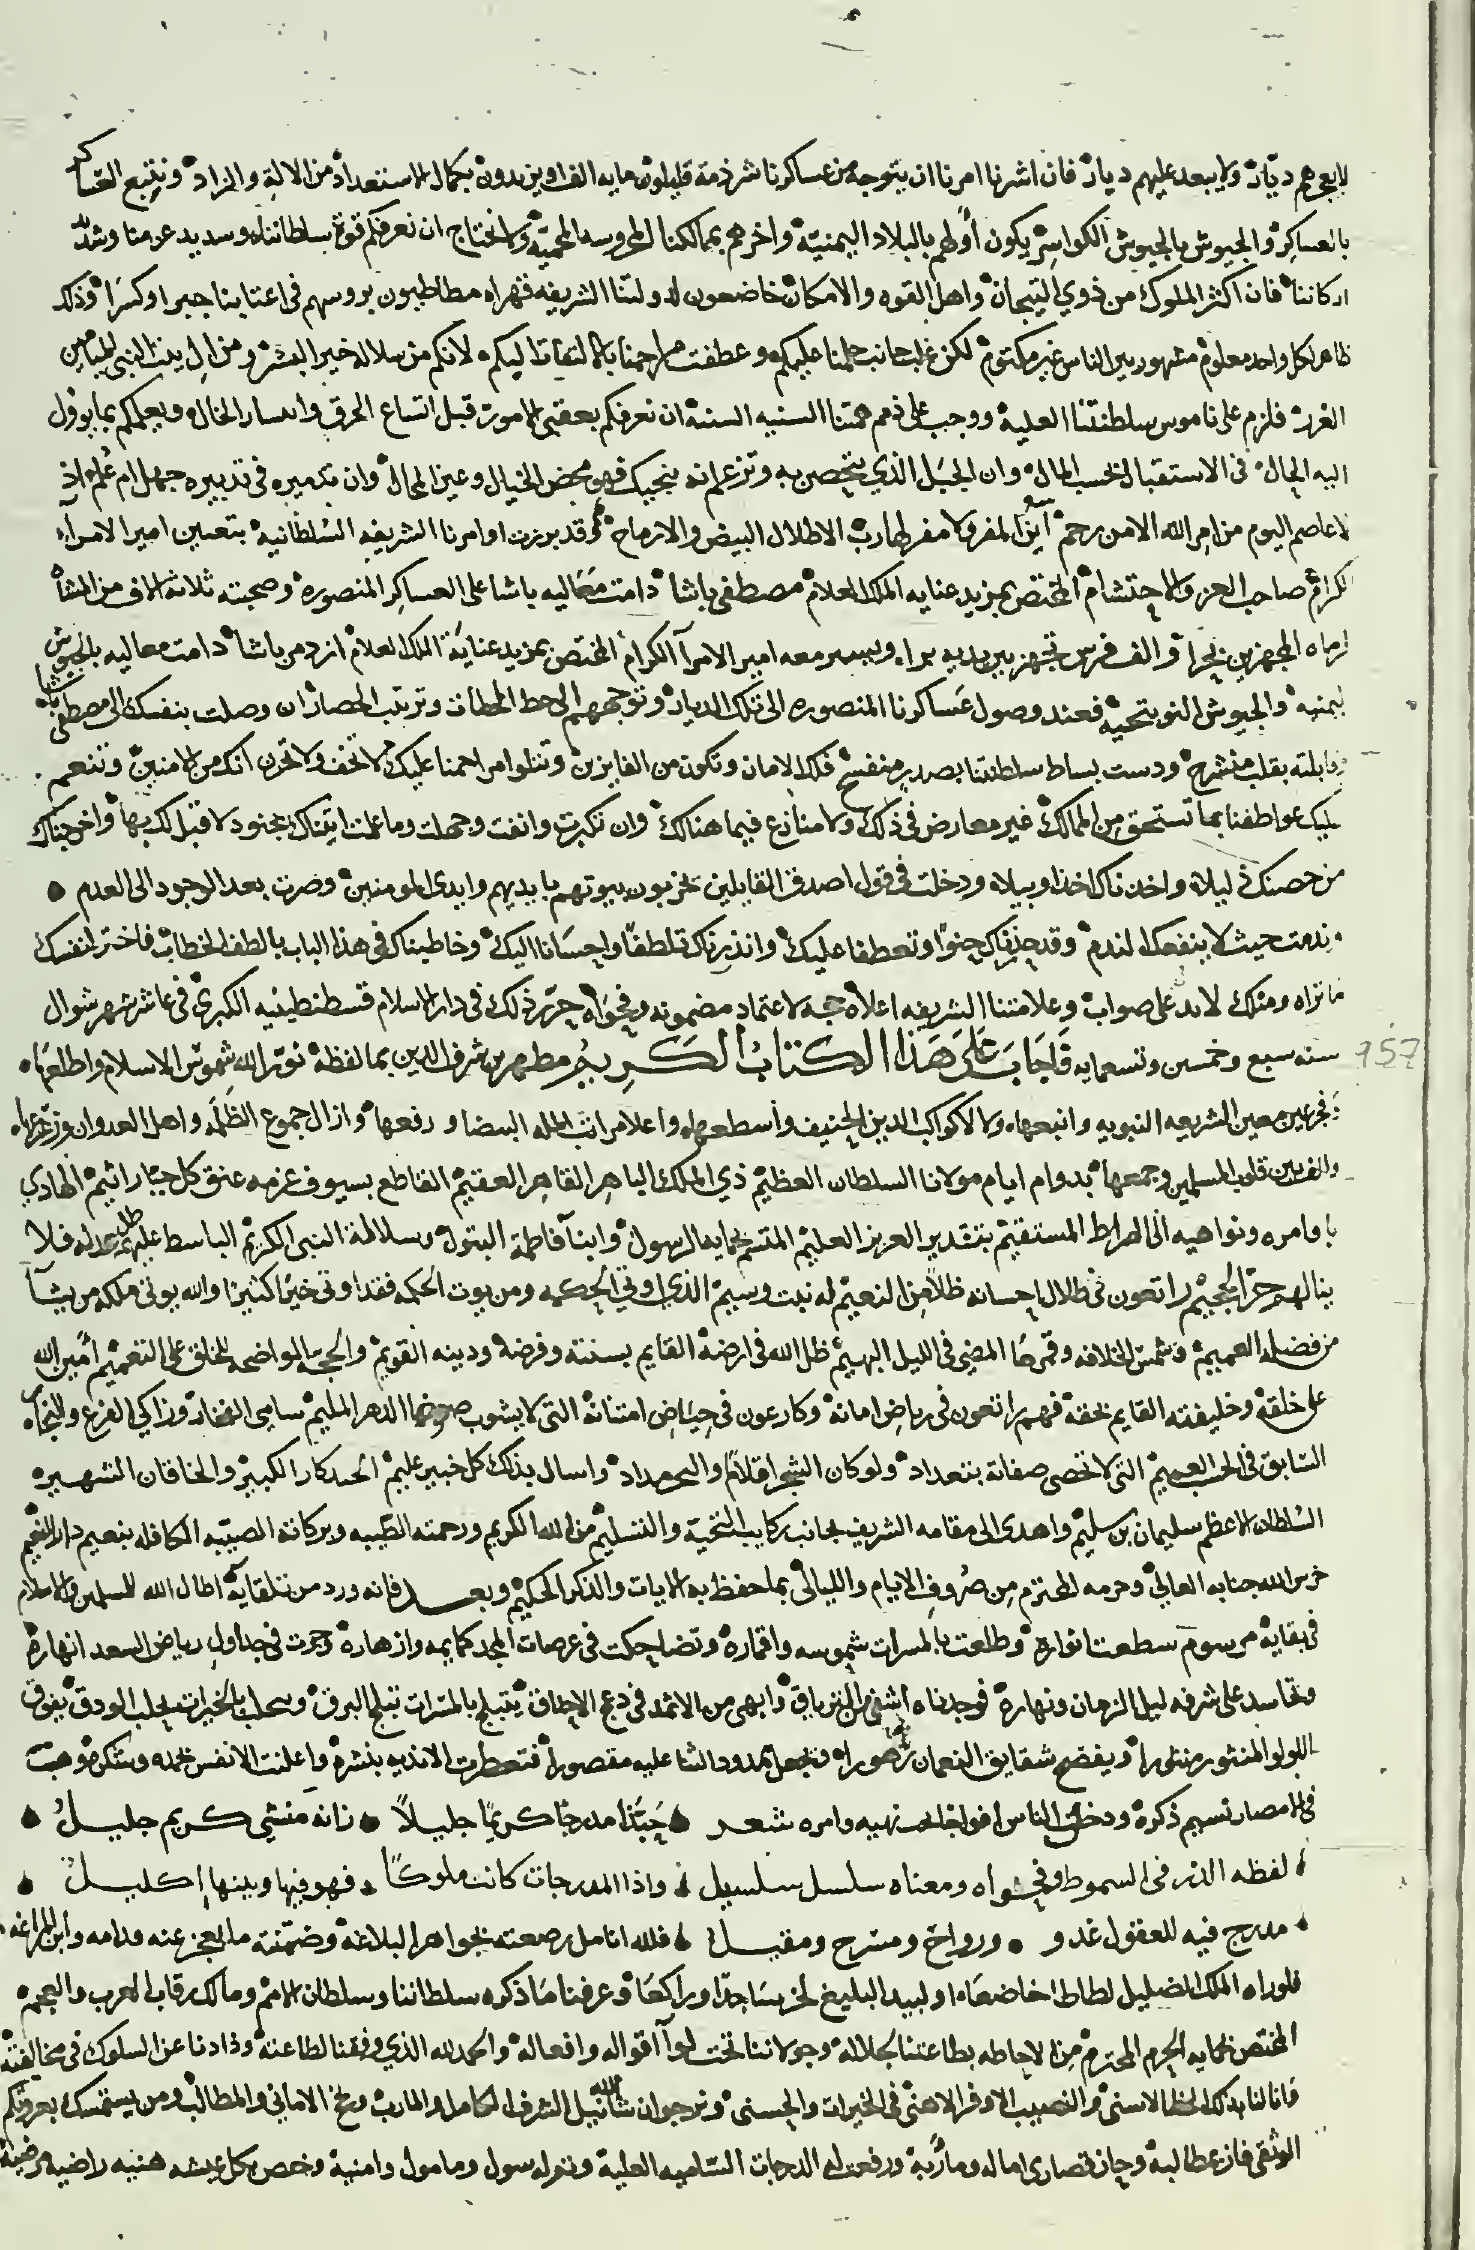 لا يعجزهم ديّان ولا يبعد عليهم ديار فان اشرنا امرنا ان يتوجه من عساكرنا شرذمة قليلون مايه الف او يزيدون بكمال الاستعداد من الالة والزاد ونتبع العساكر
بالعساكر والجيوش بالجيوش الكواسر يكون أولهم بالبلاد اليمنية واخرهم بممالكنا المحروسه المحميّة ولا نحتاج ان نعرفكم قوة سلطاننا وسديد عزمنا وشدّ
اركاننا فان اكثر الملوك من ذوي التيجان واهل القوه والامكان خاضعون لدولتنا الشريفه قهراه مطاطيون بروسهم في اعتابنا جبرا وكسرا وذلك
ظاهر لكل واحد معلوم مشهور بين الناس غير مكتوم لكن غلب جانب حلمنا عليكم وعطفت مراحمنا بالالتفات اليكم لانكم من سلاله خير البشر ومن ال بيت النبي الميامين
الغرر فلزم على ناموس سلطنتنا العلية ووجب على ذمم همتنا السنيه السنية ان نعرفكم بعقبى الامور قبل اتساع الخرق وانسار الخال ويعلمكم بما يوول
اليه الحال في الاستقبال بحسب المال وان الجبل الذي تتحصن به وتزعم انه ينجيك فهو محض الخيال وعين المحال وان تدميره في تدبيره جهل ام علم اذ
لا عاصم اليوم من امر الله الا من رحم اين المفر ولا مفر لهارب الاطلال البيض والارماح وقد برزت اوامرنا الشريفه السلطانيه بتعيين امير الامرآء
الكرام صاحب العز والاحتشام المختص بمزيد عنايه الملك العلام مصطفى باشا دامت معاليه باشا على العساكر المنصوره وصحبته ثلاثة الاف من
ارماه المجهزين بحرا والف فرس تجهز بين يديه برا ويسير معه امير الامرآ الكرام المختص بمزيد عناية الملك العلام ازدمر باشا دامت معاليه بالجيوش
اليمنيه والجيوش النوبتحيه فعند وصول عساكرنا المنصوره الى تلك الديار وتوجههم الى حط المحطات وترتيب الحصار ان وصلت بنفسك الى مصطفى باشا
وقابلته بقلب منشرح ودست بساط سلطنتنا بصدر منفسح فلك الامان وتكون من الفايزين وتتلوا مراحمنا عليك لا تخف ولا تحزن انك من الامنين وتنعم
عليك عواطفنا بما تستحق من الممالك غير معارض في ذلك ولا منازع فيما هنالك وان تكبرت وانفت وجهلت وما علمت اتيناك بجنود لا قبل لك بها واخرجناك
من حصنك ذليلاه واخذناك اخذا وبيلاه ودخلت في قول اصدق القايلين يخربون بيوتهم بايديهم وايدى المومنين وصرت بعد الوجود الى العدم
وندمت حيث لا ينفعك الندم وقد حذرناك حنوا وتعطفا عليك وانذرناك تلطفا واحسانا اليك وخاطبناك في هذا الباب بالطف الخطاب فاختر لنفسك
ما تراه ومثلك لا يدل على صواب وعلامتنا الشريفه اعلاه حجه لاعتماد مضمونه وفحواه حرّر ذلك في دار الاسلام قسطنطينيه الكبرى في عاشر شهر شوال
سنه سبع وخمسين وتسعمايه فَاجَابَ عَلَى هَذا الكتابُ الكَريمُ مطهر بن شرف الدين بما لفظة نوّر الله شموس الاسلام واطلعها
157
وفجر عين معين الشريعه النبويه وانبعها ولألأ كواكب الدين الحنيف واسطعها واعلام رايات المله البيضا ورفعها وازال جموع الظلمه واهل العدوان وزعزعها
والف بين قلوب المسلمين وجمعها بدوام ايام مولانا السلطان العظيم ذي الملك الباهر القاهر العقيم القاطع بسيوف عزمه عنق كل جبّار اثيم الهادي
باوامره ونواهيه الى الصراط المستقيم بتقدير العزيز العليم المتسم بحمايه ال الرسول وابنآ فاطمة البتول وسلالة النبي الكريم الباسط عليهم ظل عدله فلا
ينالهم حرّ الجحيم راتعون في ظلال احسانه ظلا من النعيم له نبت وسيم الذي اوتي الحكمه ومن يوت الحكمه فقد اوتى خيرا كثيرا والله يوتى ملكه من يشآ
من فضله العميم وشمس الخلافه وقمرها المضي في الليل البهيم ظل الله في ارضه القايم بسنته وفرضه ودينه القويم والحجة الواضحه للخلق على التعميم امين الله
على خلقه وخليفته القايم بحقه فهم راتعون في رياض امانه وكارعون في حياض امتنانه التى لا يشوب صفوها الدهر المليم سامي الفخار وزاكي الفرع والنجار
السابق في الحسب الصميم التى لا تحصى صفاته بتعداد ولو كان الشجر اقلام والبحر مداد واسال بذلك كل خبير عليم الخندكار الكبير والخاقان الشهير
السلطان الاعظم سليمان بن سليم واهدى الى مقامه الشريف بجانب ركايب التحية والتسليم من الله الكريم ورحمته الطيبه وبركاته الصيبه الكافله بنعيم دار النعيم
حرس الله جنابه العالي وحرمه المحترم من صروف الايام والليالي بما حفظ به الايات والذكر الحكيم وبعد فانه ورد من تلقايه اطال الله للمسلمين والاسلام
في بقايه مرسوم سطعت انواره وطلعت بالمسرات شموسه واقماره وتضاحكت في عرصات المجد كمايمه وازهاره وجرت في جداول رياض السعد انهاره
وتحاسد على شرفه ليل الزمان ونهاره فوجدناه اشفى من الترياق وابهى من الاثمد في دعج الاحداق يتبلج بالمسرات تبلج البرق ويسحب بالخيرات يحلب الودق يفوق
اللولو المنثور منثورا ويفضح شقايق النعمان زهورا ويجعل ممدود الثنا عليه مقصورا فتعطرت الاندية بنشره واعلنت الانفس بحمده وشكره وهبت
في الامصار نسيم ذكره ودخل الناس افواجا تحت نهيه وامره شعر حَبَّذا مدرجا كريمًا جليلاً زانه منشي كريم جليلُ
لفظه الدر في السموط وفحواه ومعناه سلسل سلسبيل واذا المدرجات كانت ملوكًا فهو فيها وبينها إكليلُ
مدرج فيه للعقول غدو ورواح ومسرح ومقيل فلله انامل رصعته بجواهر البلاغة وضمّنته ما العجز عنه قدامه وابن المراغه
فلو راه الملك الضليل لطاطا خاضعاه او لبيد البليغ لخر ساجدا وراكعا وعرفنا ما ذكره سلطاننا وسلطان الامم ومالك رقاب العرب والعجم
المختص بحمايه الحرم المحترم من الاحاطه بطاعتنا لجلاله وجولاننا تحت لوآ اقواله وافعاله والحمد لله الذي وفقنا لطاعته وذادنا عن السلوك في مخالفته
فانا لنا بذلك الحظ الاسنى والنصيب الاوفر الاهنى في الخيرات والحسنى ونرجو ان شا الله نيل الشرف الكامل والمارب ونخ الاماني والمطالب ومن يستمسك بعروتكم
الوثقى فاز بمطالبه وحاز قصارى اماله ومآربه ورفعت له الدرجات الساميه العلية ونوله سول ومامول وامنية وخص بكل عيشه هنيه راضيه مرضية